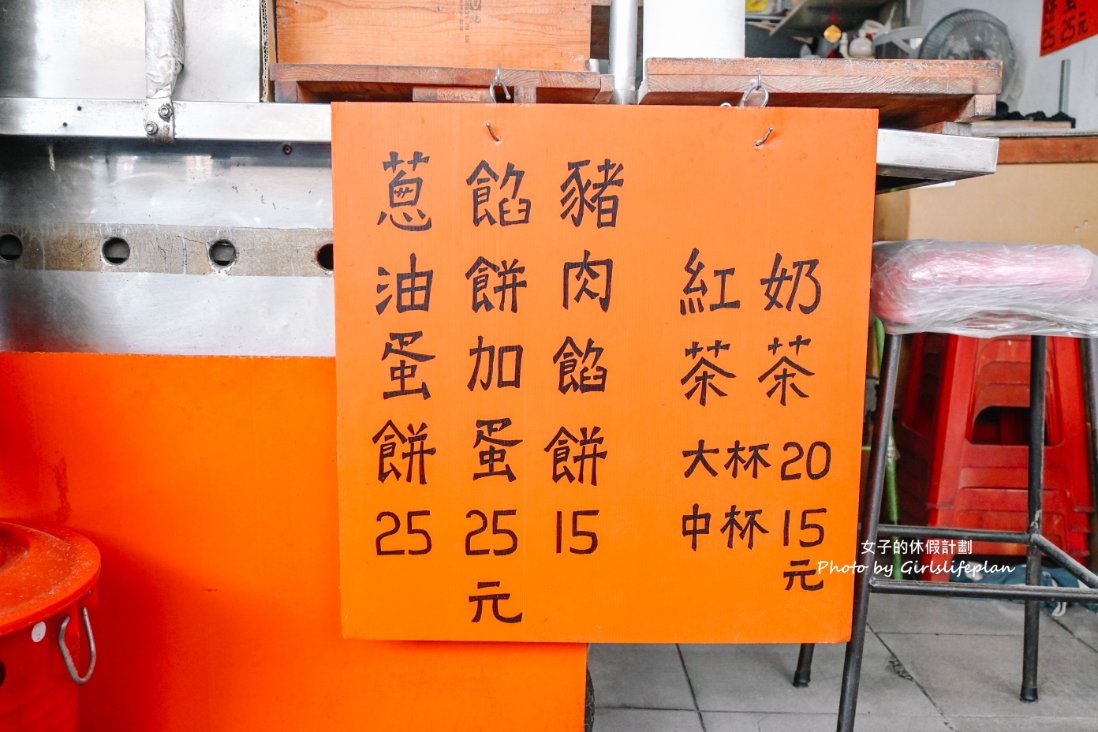 豬肉餡餅 15
餡餅加蛋 25元
蔥油蛋餅 25
奶茶
紅茶
大杯 20
中杯 15元
25元
女子的休假計劃
Photo by Girlslifeplan